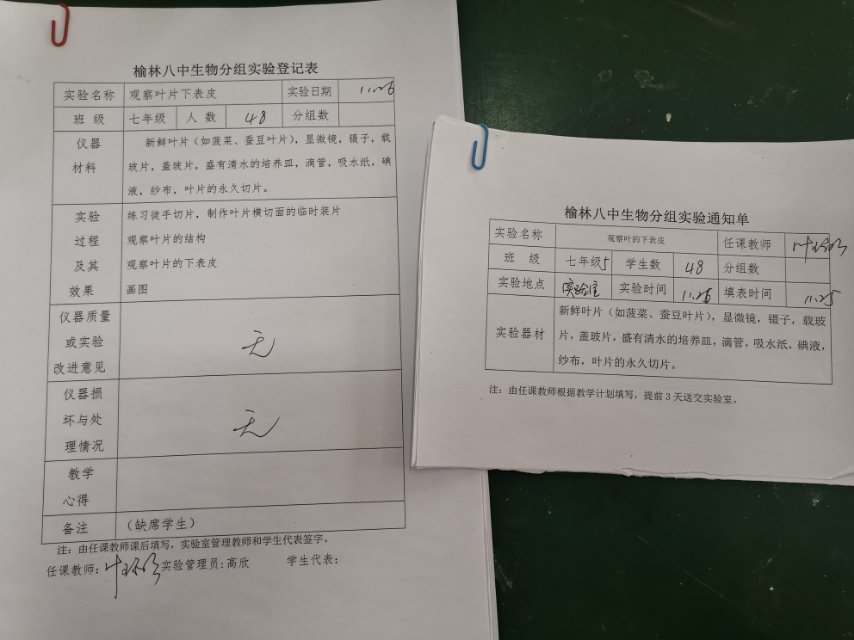 榆林八中生物分组实验登记表
实验名称 观察叶片下表皮 实验日期 11.26
班 级 七年级 人 数 48 分组数
仪器材料 新鲜叶片（如菠菜、蚕豆叶片），显微镜，镊子，载
玻片，盖玻片，盛有清水的培养皿，滴管，吸水纸，碘
液，纱布，叶片的永久切片。
实验 练习徒手切片，制作叶片横切面的临时装片
过程 观察叶片的结构
及其 观察叶片的下表皮
效果 画图
仪器质量
或实验 无
改进意见
仪器损
坏与处 无
理情况
教学
心得
备注 （缺席学生）
注：由任课教师课后填写，实验室管理教师和学生代表签字。
任课教师： 实验管理员：高欣 学生代表：
榆林八中生物分组实验通知单
实验名称 观察叶的下表皮 任课教师
班 级 七年级5 学生数 48 分组数
实验地点 实验室 实验时间 11.26 填表时间 11.25
新鲜叶片（如菠菜、蚕豆叶片），显微镜，镊子，载玻
实验器材 片，盖玻片，盛有清水的培养皿，滴管，吸水纸，碘液，
纱布，叶片的永久切片。
注：由任课教师根据教学计划填写，提前 3 天送交实验室。